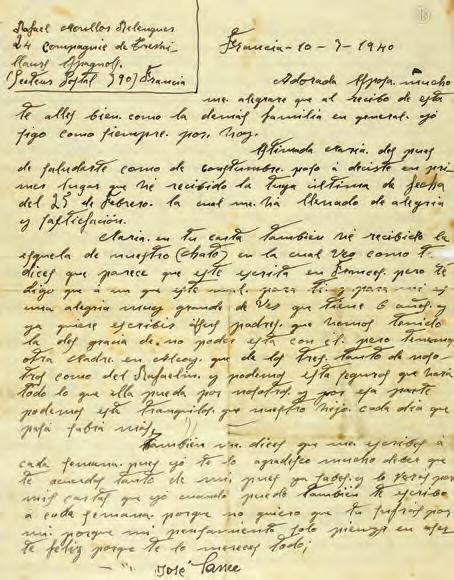 Rafael Morillos Melenguez
24 Compagnie de Travai
lleurs Espagnols.
(Secteur Postal 390) Francia
Francia-10-3-1940
Adorada Esposa. mucho
me alegrare que al recibo de esta
te alles bien. como la demás familia en general. yó
sigo como siempre. por. hoy.
Estimada María. des pues
de saludarte como de constumbre. paso á decirte en pri
mer lugar que hé recibido la tuya ultima de fecha
del 25 de febrero. la cual me. há llenado de alegria
y satisfación.
María. en tu carta tambien hé recibido la
esquela de nuestro (chato) en la cual veo como t.
dices que parece que este escrita en frances. pero te
digo que á un que este mal. para ti y para mi es
una alegria muy grande de ver que tiene 6 años. y
ya quiere escribir á sus padres. que hemos tenido
la des gracia de. no poder esta con el. pero tenemos
otra Madre. en que de los tres. tanto de noso-
tros como del Rafaelin. y podemos esta seguros que hará
todo lo que ella pueda por nosotros. y por esa parte
podemos este tranquilos. que nuestro hijo. cada dia que
pasa sabrá más.
También me. dices que me. escribes á
cada semana. pues yó te lo agradesco mucho deber que
te acuerdas tanto de mi pues ya sabes. y lo veras por
mis cartas que yó cuando puedo tambien te escribo
á cada semana. porque no quiero que tu sufras por
mi porque mi pensamiento solo piensa en aser
te feliz porque te lo mereces todo;
José